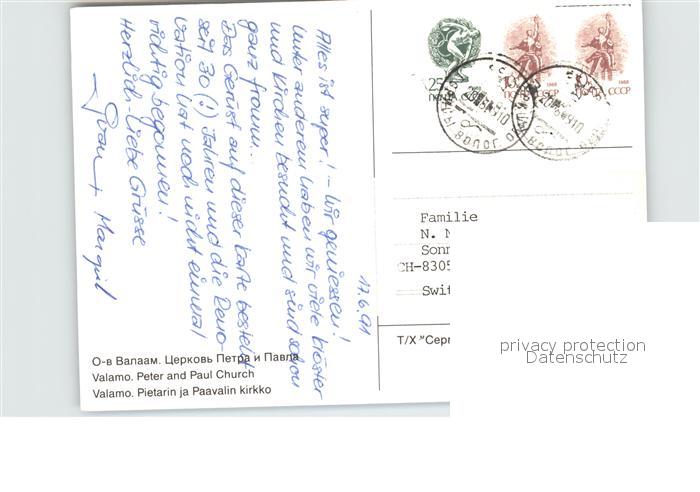 Alles ist super! – Wir geniessen!
Unter anderem haben wir viele Klöster
und Kirchen besucht und sind schon
ganz fromm.
Das Gerüst auf dieser Karte besteht
seit 30 (!) Jahren und die Reno-
vation hat noch nicht einmal
richtig begonnen!
Herzlich liebe Grüsse
+ Margrit
17.6.91
О-в Валаам. Церковь Петра и Павла
Valamo. Peter and Paul Church
Valamo. Pietarin ja Paavalin kirkko
25
1988
1988
СССР
Familie
N. N
Sonn
CH-8305
Swit
Т/Х "Серг
privacy protection
Datenschutz